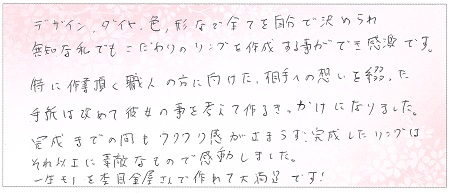 デザイン、ダイヤ、色、形など全てを自分で決められ
無知な私でもこだわりのリングを作成する事ができ感激です。
特に作業頂く職人の方に向けた、相手への想いを綴った
手紙は改めて彼女の事を考えて作るきっかけになりました。
完成までの間もワクワク感が止まらず、完成したリングは
それ以上に素敵なもので感動しました。
一生モノを杢目金屋さんで作れて大満足です!